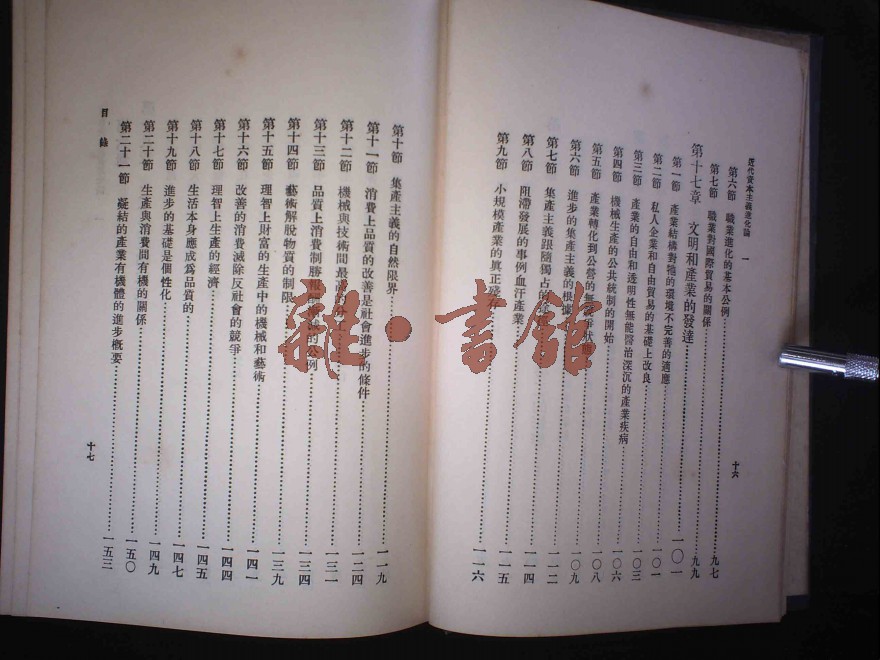 近代資本主義進化論 一
第六節 職業進化的基本公例……九七
第七節 職業對國際貿易的關係……九九
第十七章 文明和產業的發達……一〇一
第一節 產業結構對牠的環境不完善的適應……一〇一
第二節 私人企業和自由貿易的基礎上改良……一〇一
第三節 產業的自由和透明性無能醫治深沉的產業疾病……一〇三
第四節 機械生產的公共統制的開始……一〇六
第五節 產業轉化到公營的無……爭狀……一〇八
第六節 進步的集產主義的根據……一〇九
第七節 集產主義跟隨獨占的……一一二
第八節 阻滯發展的事例血汗產業……一一四
第九節 小規模產業的眞正殘存……一一五
一一六
十六
第十節 集產主義的自然限界……一一九
第十一節 消費上品質的改善是社會進步的條件……一二四
第十二節 機械與技術間最……一三一
第十三節 品質上消費制勝報酬漸減的公例……一三四
第十四節 藝術解脫物質的制限……一三九
第十五節 理智上財富的生產中的機械和藝術……一四一
第十六節 改善的消費滅除反社會的競爭……一四四
第十七節 理智上生產的經濟……一四五
第十八節 生活本身應成爲品質的……一四七
第十九節 進步的基礎是個性化……一四九
第二十節 生產與消費間有機的關係……一五〇
第二十一節 凝結的產業有機體的進步概要……一五三
目錄
十七
雜·書館